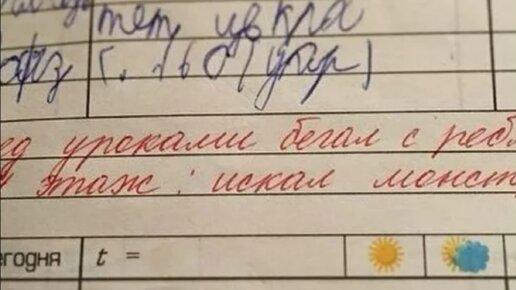 тет, цвкра
г. 160 (упр)
ед уроками бегал с реб
этаж: искал монст
егодня t =